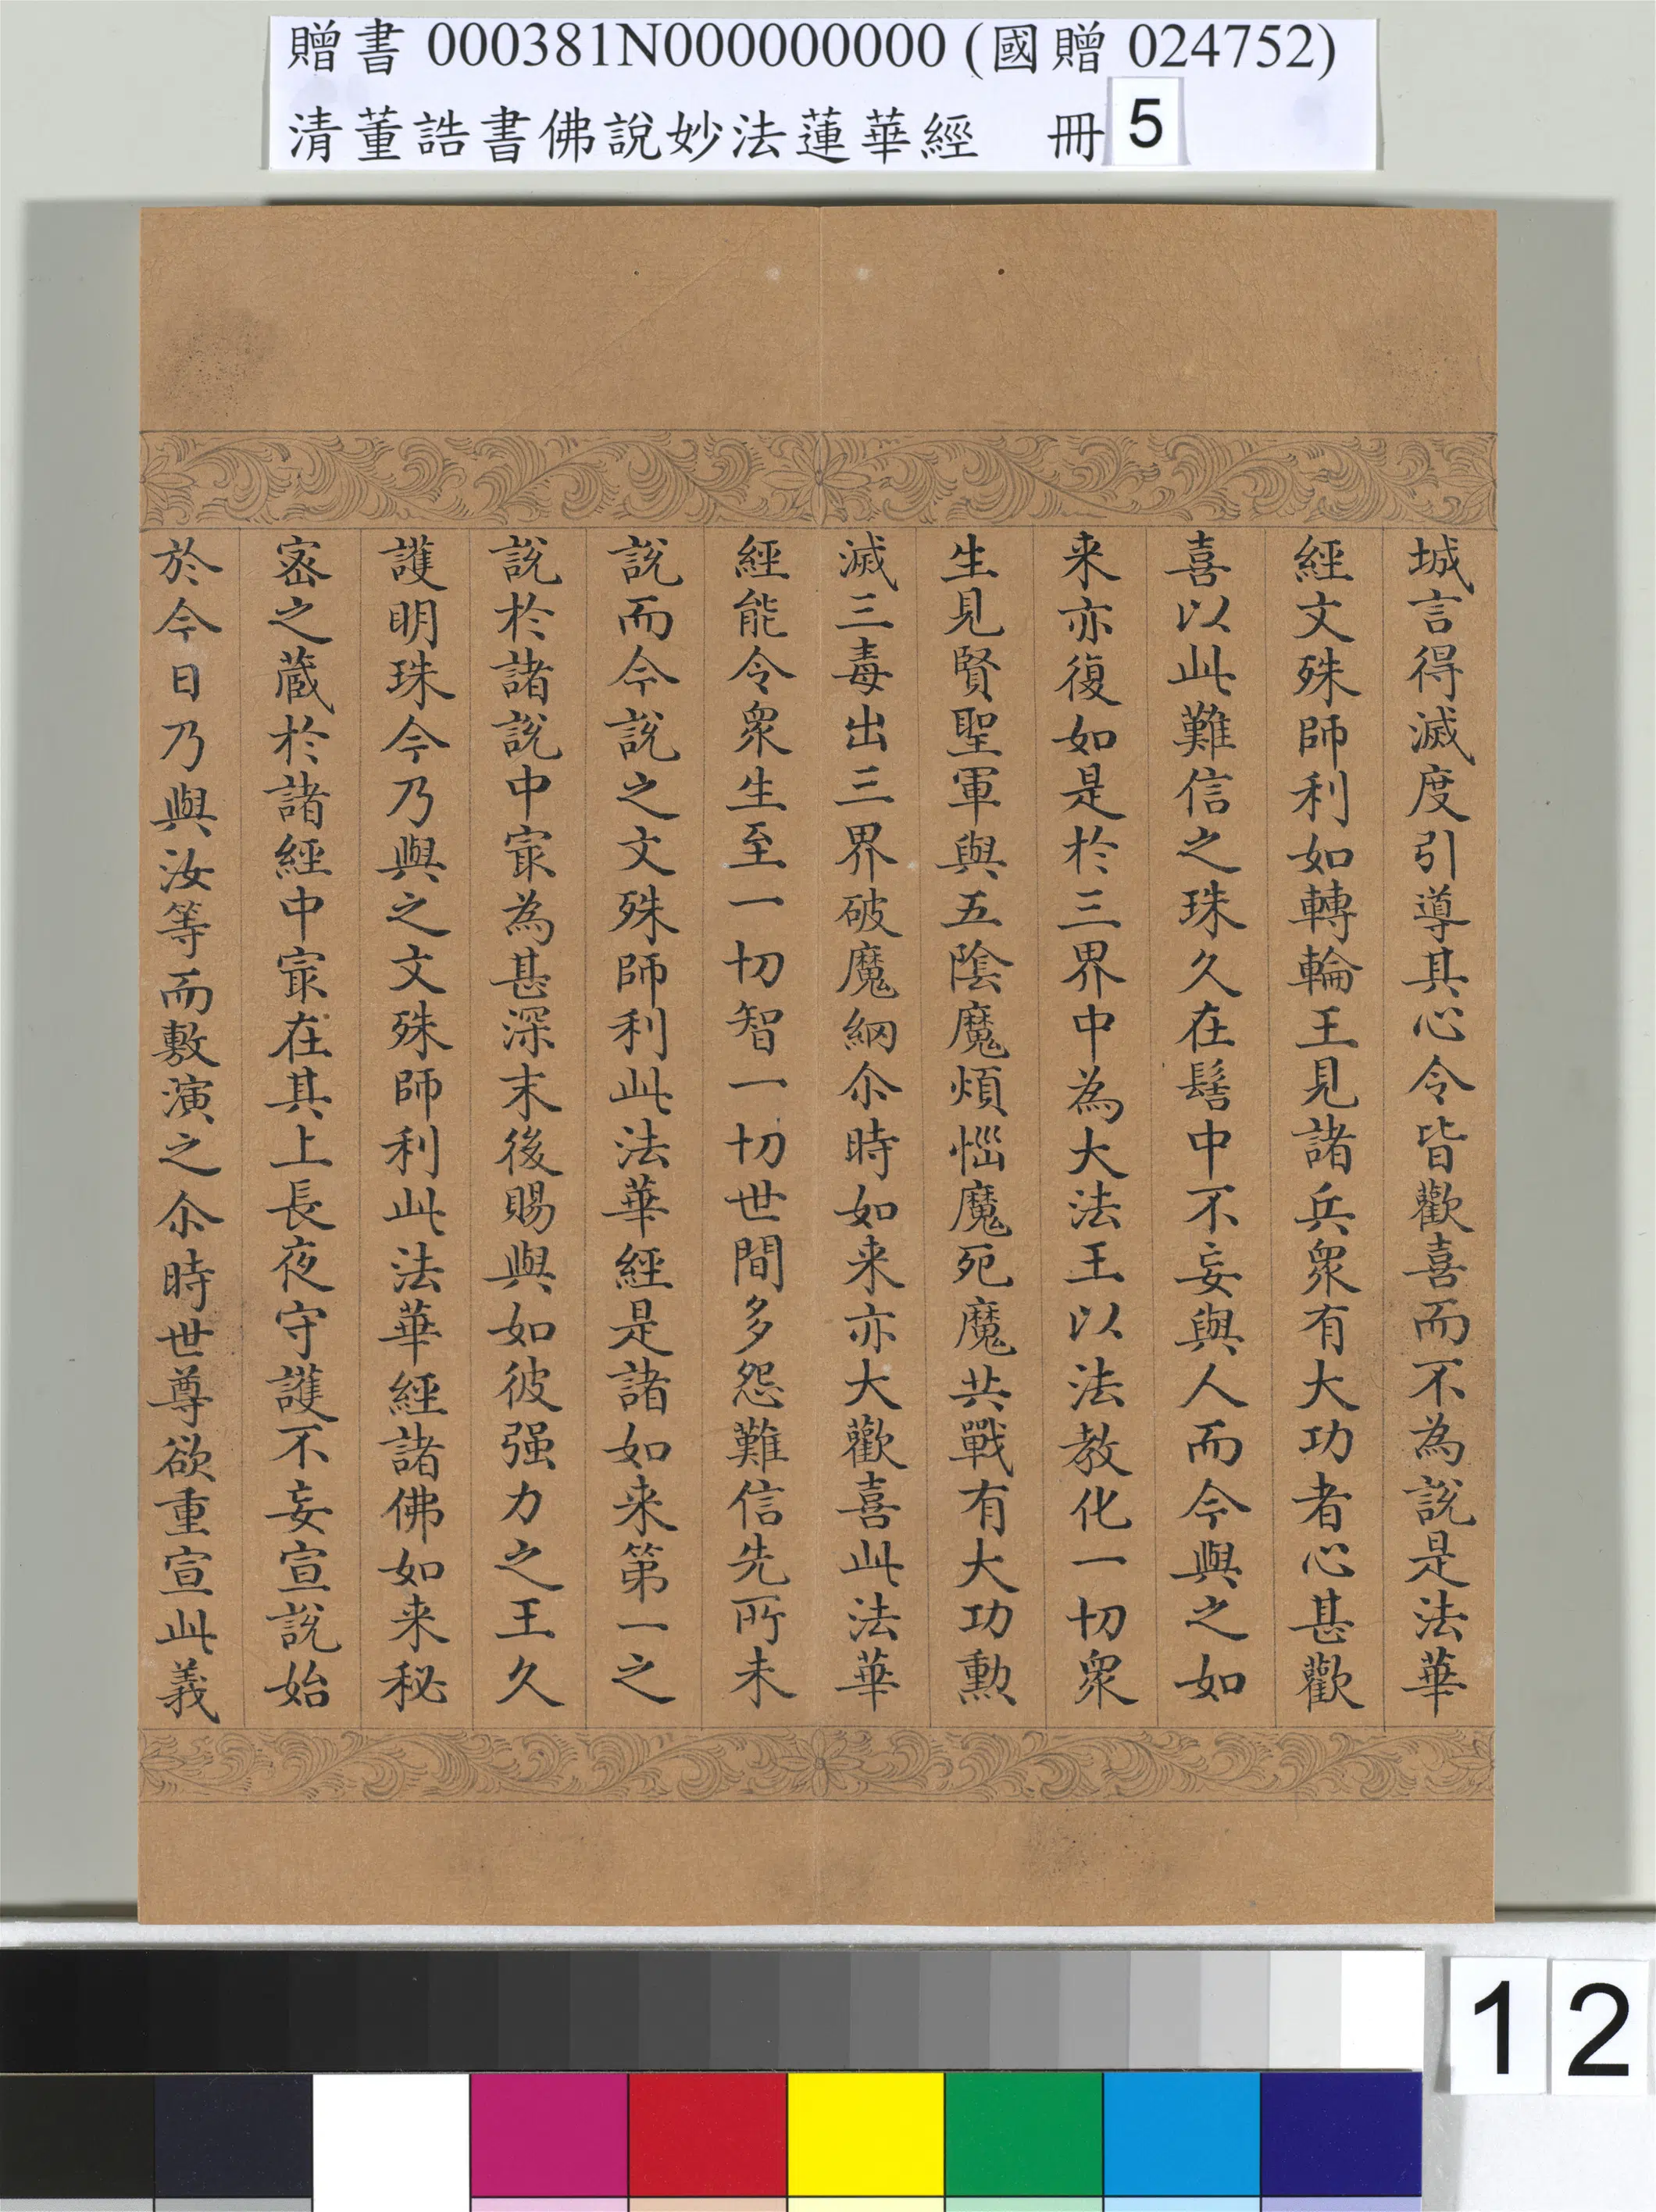 贈書 000381N000000000 (國贈 024752)
清董誥書佛說妙法蓮華經 冊5
城言得滅度引導其心令皆歡喜而不為說是法華
經文殊師利如轉輪王見諸兵衆有大功者心甚歡
喜以此難信之珠久在髻中不妄與人而今與之如
来亦復如是於三界中為大法王以法教化一切衆
生見賢聖軍與五陰魔煩惱魔死魔共戰有大功勲
滅三毒出三界破魔網尒時如来亦大歡喜此法華
經能令衆生至一切智一切世間多怨難信先所未
說而今說之文殊師利此法華經是諸如来第一之
說於諸說中㝡為甚深末後賜與如彼强力之王久
護明珠今乃與之文殊師利此法華經諸佛如来秘
宻之蔵於諸經中㝡在其上長夜守護不妄宣說始
於今日乃與汝等而敷演之尒時世尊欲重宣此義
12